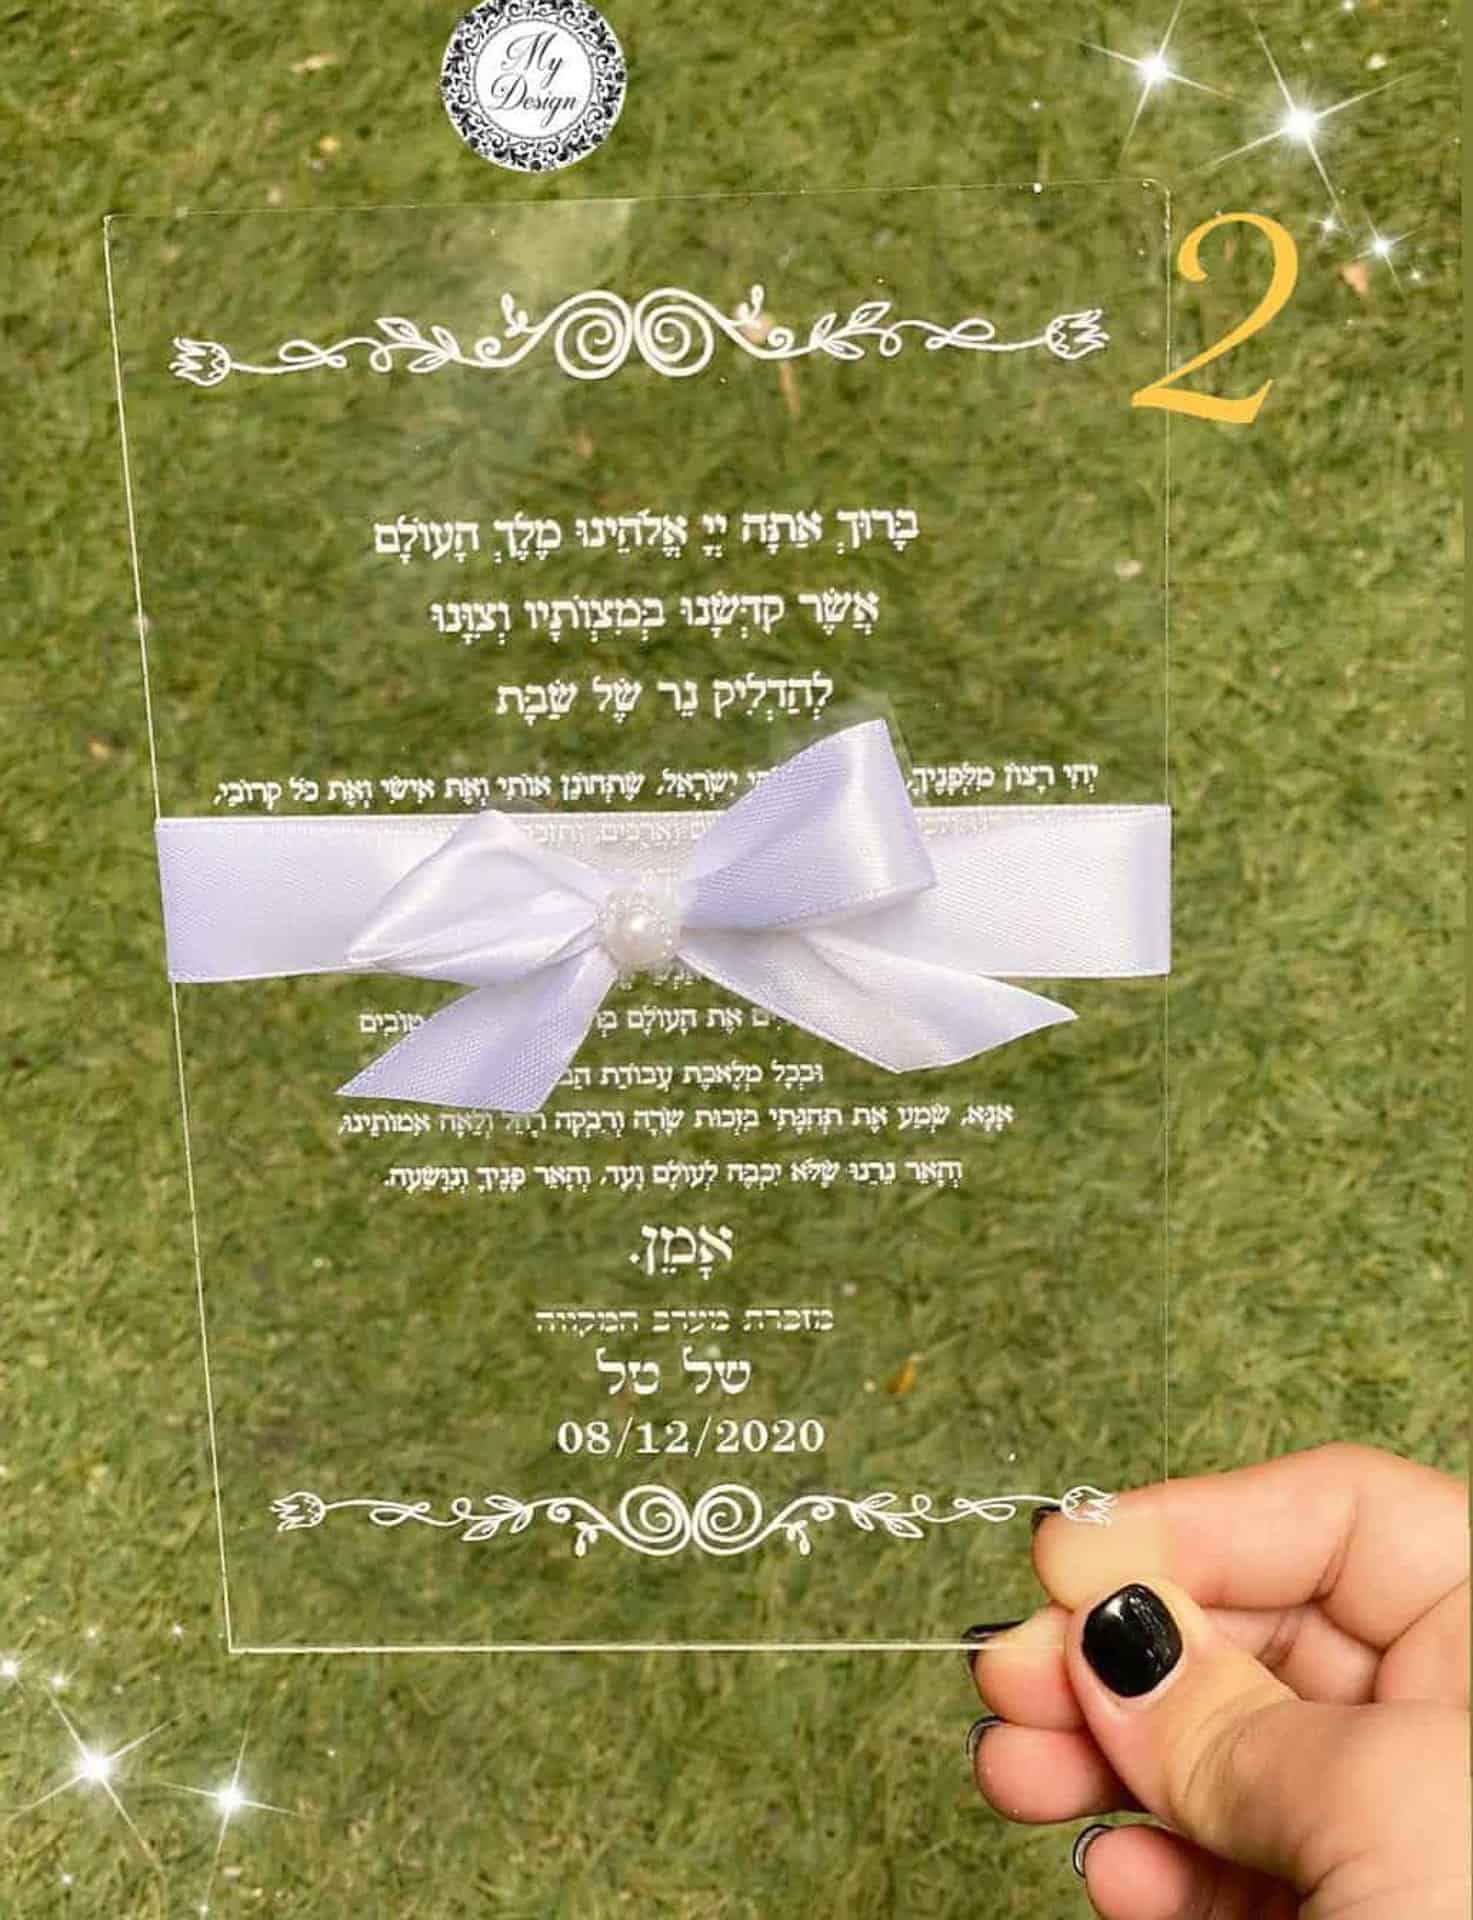 My
Design
2
בָּרוּךְ אַתָּה יְיָ אֱלֹהֵינוּ מֶלֶךְ הָעוֹלָם
אֲשֶׁר קִדְּשָׁנוּ בְּמִצְוֹתָיו וְצִוָּנוּ
לְהַדְלִיק נֵר שֶׁל שַׁבָּת
יְהִי רָצוֹן מִלְּפָנֶיךָ, יִשְׂרָאֵל, שֶׁתְּחוֹנֵן אוֹתִי וְאֶת אִישִׁי וְאֶת כֹּל קְרוֹבַי,
אֶת הָעוֹלָם טוֹבִים
וּבְכָל מְלֶאכֶת עֲבוֹדַת
אָנָּא, שְׁמַע אֶת תְּחִנָּתִי בִּזְכוּת שָׂרָה וְרִבְקָה רָחֵל וְלֵאָה אִמּוֹתֵינוּ,
וְהָאֵר נֵרֵנוּ שֶׁלֹּא יִכְבֶּה לְעוֹלָם וָעֶד, וְהָאֵר פָּנֶיךָ וְנִוָּשֵׁעָה.
אָמֵן.
מזכרת מערב המקווה
של טל
08/12/2020